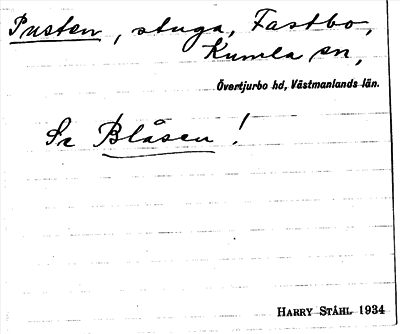 Pusten, stuga, Fastbo,
Kumla sn,
Övertjurbo hd, Västmanlands län.
Se Blåsen!
HARRY STÅHL 1934